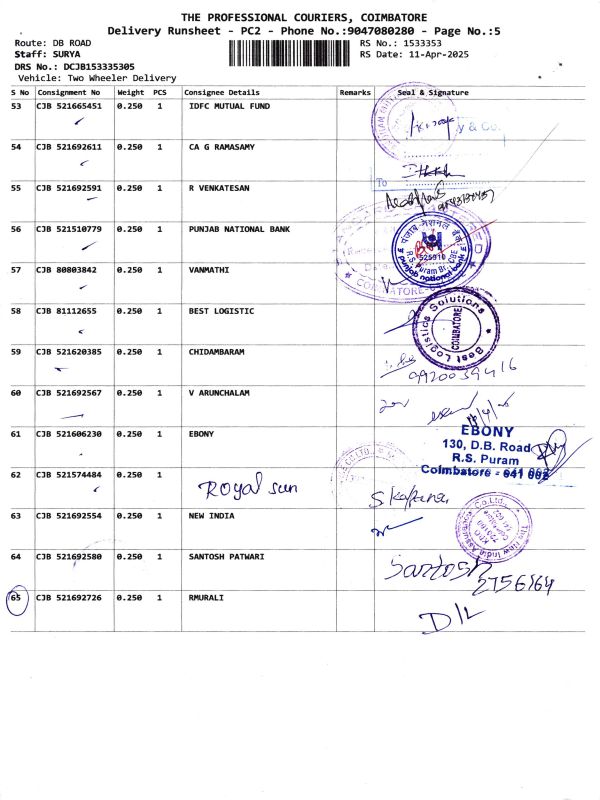 THE PROFESSIONAL COURIERS, COIMBATORE
Delivery Runsheet - PC2 - Phone No.:9047080280 - Page No.:5
Route: DB ROAD
RS No.: 1533353
Staff: SURYA
RS Date: 11-Apr-2025
DRS No.: DCJB153335305
Vehicle: Two Wheeler Delivery
S No Consignment No Weight PCS Consignee Details Remarks Seal & Signature
53 CJB 521665451 0.250 1 IDFC MUTUAL FUND
y & Co.
54 CJB 521692611 0.250 1 CA G RAMASAMY
To
55 CJB 521692591 0.250 1 R VENKATESAN
56 CJB 521510779 0.250 1 PUNJAB NATIONAL BANK
पंजाब नैशनल बैंक
525910
R.S. Puram Br. CBE
punjab national bank
57 CJB 80803842 0.250 1 VANMATHI
COIMBATORE
58 CJB 81112655 0.250 1 BEST LOGISTIC
Best Logistics Solutions
COIMBATORE
59 CJB 521620385 0.250 1 CHIDAMBARAM
9920039416
60 CJB 521692567 0.250 1 V ARUNCHALAM
61 CJB 521606230 0.250 1 EBONY
EBONY
130, D.B. Road
R.S. Puram
Coimbatore - 641 002
62 CJB 521574484 0.250 1 Royal sun
S. Kalpana
63 CJB 521692554 0.250 1 NEW INDIA
The New India Assurance Co. Ltd.
64 CJB 521692580 0.250 1 SANTOSH PATWARI
Santosh
2756164
65 CJB 521692726 0.250 1 RMURALI
D/L